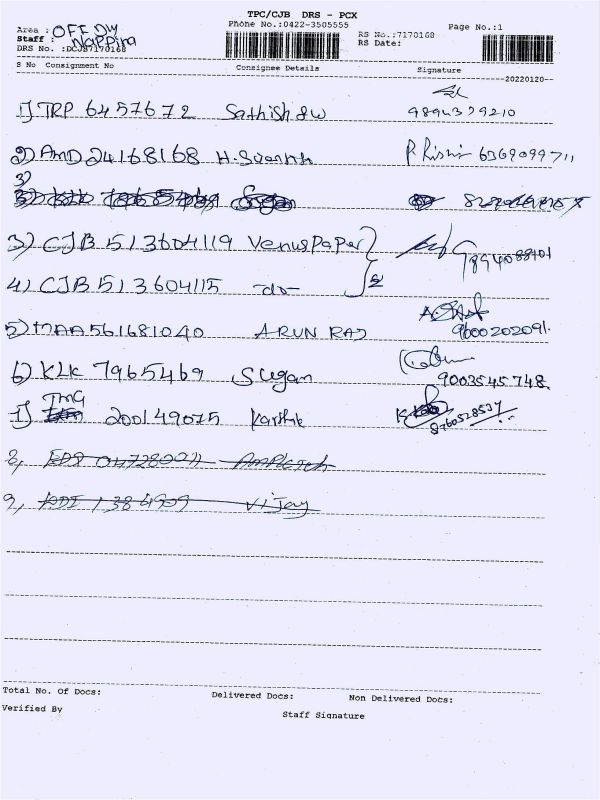 TPC/CJB DRS - PCX
Phone No.:0422-3505555
Page No.:1
Area : OFF DW
Staff : Nappina
DRS No. :DCJB7170168
RS No.:7170168
RS Date:
S No Consignment No Consignee Details Signature
20220120
1) TRP 6457672 Sathish 9894379210
2) AMD 24168168 H. 6369099711
3)
3) CJB 513604119 Venus Paper
4) CJB 513604115 -do-
5) MAA 561681040 ARUN RAJ 9600202091
6) KLK 7965469 Sugan 9003545748
TMG
7) 200149075 Karthik 8760528537
8,
9, 1384909 Vijay
Total No. Of Docs: Delivered Docs: Non Delivered Docs:
Verified By Staff Signature